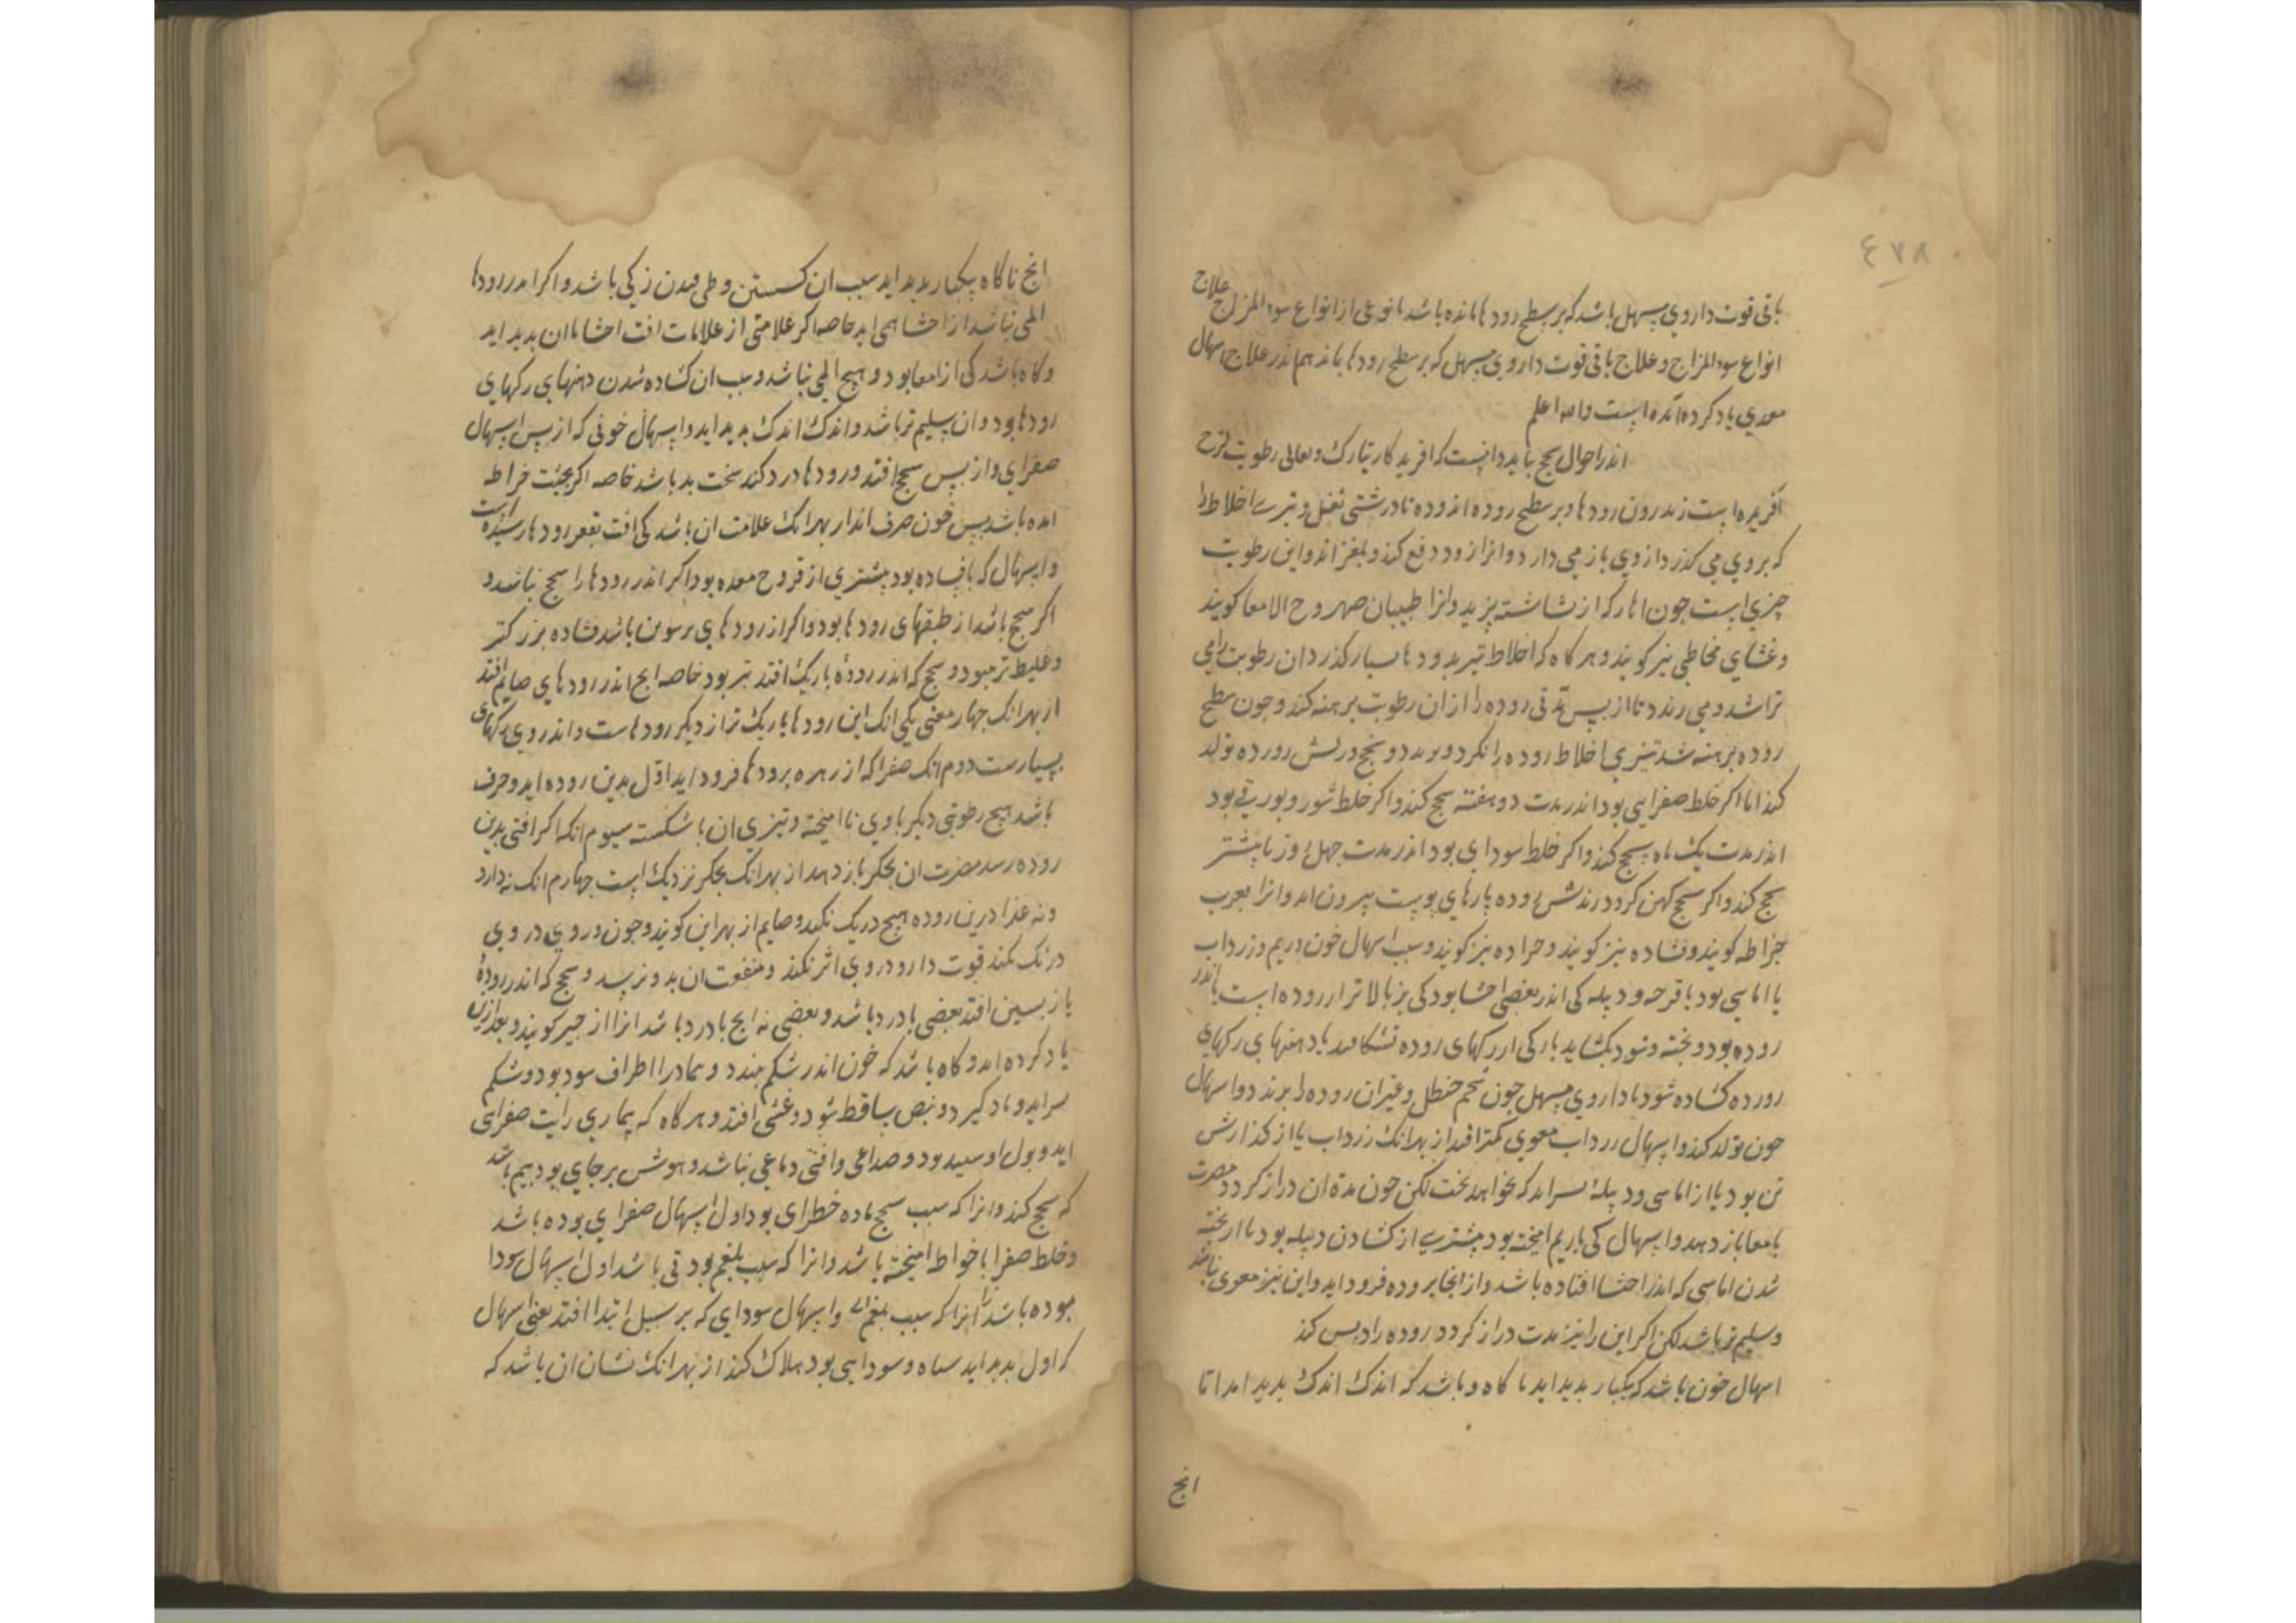 ٤٧٨
باقی قوت داروي مسهل باشد که بر سطح رودها مانده باشد یا نوعی از انواع سوء المزاج علاج
انواع سوء المزاج و علاج باقی قوت داروي مسهل که بر سطح رودها بماند هم اندر علاج اسهال
معدي یاد کرده آمده است والله اعلم
اندر احوال سحج بباید دانست که افریدکار تبارک وتعالی رطوبت لزج
افریده است اندرون رودها و بر سطح روده اندوده تا درشتی ثفل و تیزي اخلاط را
که بروي می کذرد ازوي باز می دارد و انرا زود دفع کند و بلغزاند و این رطوبت
چیزي است جون اهار که از نشاسته پزند وانرا طبیبان صهروج الامعا کویند
و غشاي مخاطی نیز کویند و هرکاه که اخلاط تیز برودها بسیار کذرد ان رطوبت را می
تراشد و می رندد تا از پس مدتی روده را از ان رطوبت برهنه کند و جون سطح
روده برهنه شد تیزي اخلاط روده را بکزد و برندد و سحج و ریش روده تولد
کند اما اکر خلط صفرایی بود اندر مدت دو هفته سحج کند و اکر خلط شور و بورقی بود
اندر مدت یک ماه سحج کند و اکر خلط سوداي بود اندر مدت جهل روز یا بیشتر
سحج کند و اکر سحج کهن کردد رندش روده پارهاي پوست بیرون اید وانرا بعرب
خراطه کویند و نشاده نیز کویند و جراده نیز کویند و سبب اسهال خون و ریم و زرداب
یا اماسی بود یا قرحه و دبیله کی اندر بعضی احشا بود کی بر بالاتر از روده است یا اندر
روده بود و پخته شود و بکشاید یا رکی از رکهاي روده بشکافد یا دهنهاي رکهاي
روده کشاده شود یا داروي مسهل جون شحم حنظل و غیر ان روده را برندد و اسهال
خون تولد کند و اسهال زرداب معوي کمتر افتد از بهر انک زرداب یا از کدازش
تن بود یا از اماسی و دبیلهٔ سر اید که بخواهد پخت لکن جون مدة ان دراز کردد مضرت
بامعا باز دهد و اسهال کی با ریم امیخته بود بیشتري از کشادن دبیله بود یا از پخته
شدن اماسی که اندر احشا افتاده باشد و از انجا بروده فرود اید و این نیز معوي نباشد
و سلیم تر باشد لکن اکر این را نیز مدت دراز کردد روده را ریش کند
اسهال خون باشد که بیکبار بدید اید ناکاه و باشد که اندک اندک بدید اید اما
انج
انج ناکاه بیکبار بدید اید سبب ان کسستن و طرقیدن رکی باشد و اکر اندر رودها
المی نباشد از احشا همی اید خاصه اکر علامتی از علامات افت احشا با ان بدید اید
و کاه باشد کی از امعا بود و هیج المی نباشد و سبب ان کشاده شدن دهنهاي رکهاي
رودها بود و ان سلیم تر باشد و اندک اندک بدید اید و اسهال خونی که از پس اسهال
صفراي و از پس سحج افتد و رودها درد کند سخت بد باشد خاصه اکر نخست خراطه
امده باشد پس خون صرف اندر اید بهر انک علامت ان باشد کی افت بقعر رودها رسیده است
و اسهال که با فساده بود بیشتري از قروح معده بود اکر اندر رودها را سحج نباشد و
اکر سحج باشد از طبقهاي رودها بود و اکر از رودهاي برسوین باشد فشاده بزرکتر
و غلیظ تر نبود و سحج که اندر رودهٔ باریک افتد بتر بود خاصه انج اندر رودهاي صایم افتد
از بهر انک جهار معنی یکی انک این رودها باریک تر از دیکر رودهاست و اندر وي رکهاي
بسیارست دوم انک صفرا که از زهره برودها فرود اید اول بدین روده اید و صرف
باشد هیج رطوبتی دیکر با وي نا امیخته و تیزي ان ناشکسته سیوم انک اکر افتی بدین
روده رسد مضرت ان بجکر باز دهد از بهر انک بجکر نزدیک است جهارم انک نه دارو
و نه غذا درین روده هیج درنک نکند و صایم از بهر این کویند و جون داروي در وي
درنک نکند قوت دارو در وي اثر نکند و منفعت ان بدو نرسد و سحج که اندر رودهٔ
بازپسین افتد بعضی با درد باشد و بعضی نه انج با درد باشد انرا زحیر کویند و بعد ازین
یاد کرده اید و کاه باشد که خون اندر شکم ببندد و بیمار را اطراف سرد بود و شکم
براید و باد کیرد و نبض ساقط شود و غشی افتد و هرکاه که بیماري را تب صفراي
اید و بول او سپید بود و صداعی و افتی دماغی نباشد و هوش برجاي بود بیم باشد
که سحج کند وانرا که سبب سحج ماده خطراي بود اول اسهال صفراي بوده باشد
و خلط صفرا با خراطه امیخته باشد وانرا که سبب بلغم بورقی باشد اول اسهال سودا
نبوده باشد انرا که سبب بلغم و اسهال سوداي که بر سبیل ابتدا افتد یعنی اسهال
که اول بدید اید سیاه و سودایی بود هلاک کند از بهر انک نشان ان باشد که